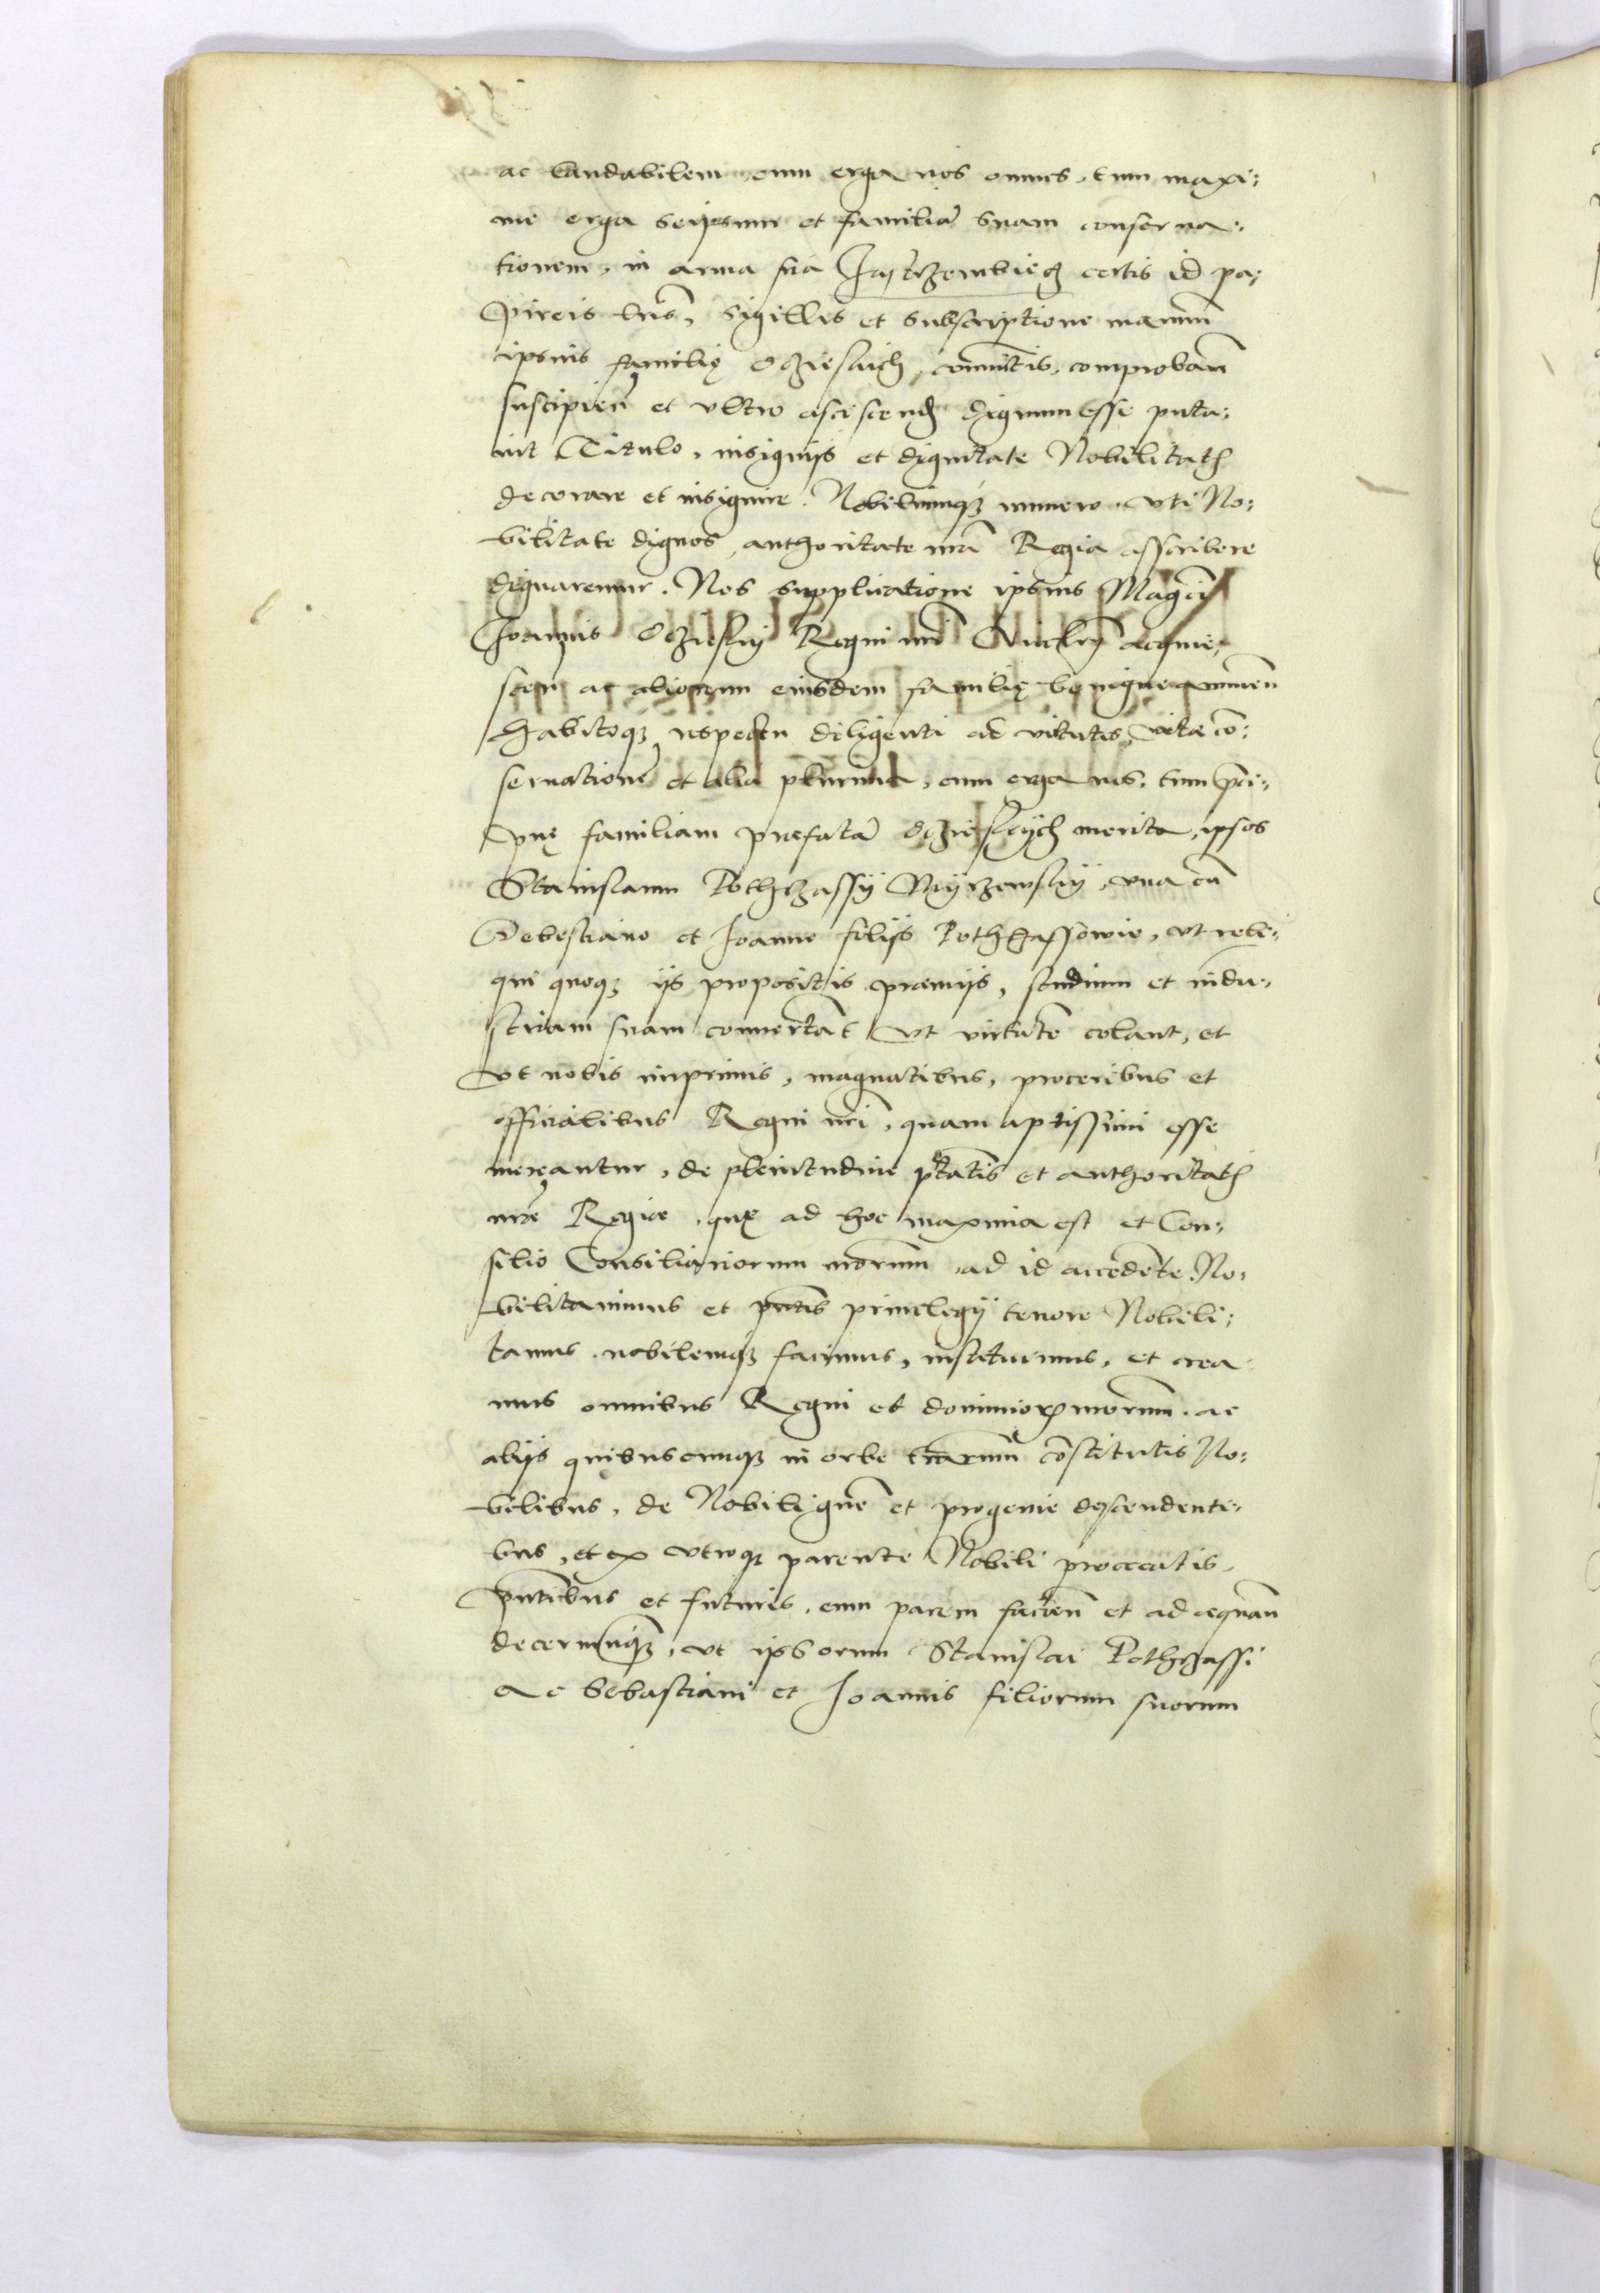 ac laudabilem cum erga nos omnes, tum maxi:
me erga seipsum et familiā suam conserua:
tionem, in arma sua Jastrzembiecz certis id pa:
pireis lrīs, sigillis et subscriptione manuum
ipsius familię Oczieskich, cōmunitis, comprobāń
suscipień et vltro asciscend dignum esse puta:
uit Titulo, insignijs et dignitate Nobilitatis
decorare et insignire. Nobiliumq; numero, vti No:
bilitate dignos, authoritate nrā Regia asscribere
dignaremur. Nos supplicatione ipsius Magci
Joannis Oczieskij Regni nrī acquie:
sceń ac aliorum eiusdem familię benigne annueń
habitoq; respectu diligenti ad virtutis, vitae cō:
seruationē et alia plurima, cum erga nos, tum prēci:
pue familiam prefatā Oczieskych merita, ipsos
Stanislaum Pothhassÿ vna cū
Sebestiano et Joanne filijs Pothhassowie, vt reli:
qui quoq; ijs propositis praemijs, studium et indu:
striam suam conuertāt vt virtutē colant, et
vt nobis inprimis, magnatibus, proceribus et
officialibus Regni nrī, quam aptissimi esse
mereantur, de plenitudine ptātis et authoritatis
nrē Regiae, que ad hoc maxima est et Con:
silio Consiliariorum nrōrum, ad id accedēte. No:
bilitauimus et pntis priuilegij tenore Nobili:
tamus, nobilemq; facimus, instituimus, et crea
mus omnibus Regni et dominiorum nrōrum, ac
alijs quibuscunq; in orbe trarum cōstitutis No:
bilibus, de Nobili gnē et progenie descendenti:
bus, et ex vtroq; parente Nobili procreatis,
pntibus et futuris, eum parem facień et adaequāń
decernimusq;, vt ipsorum Stanislai Pothhassi
ac Sebastiani et Joannis filiorum suorum